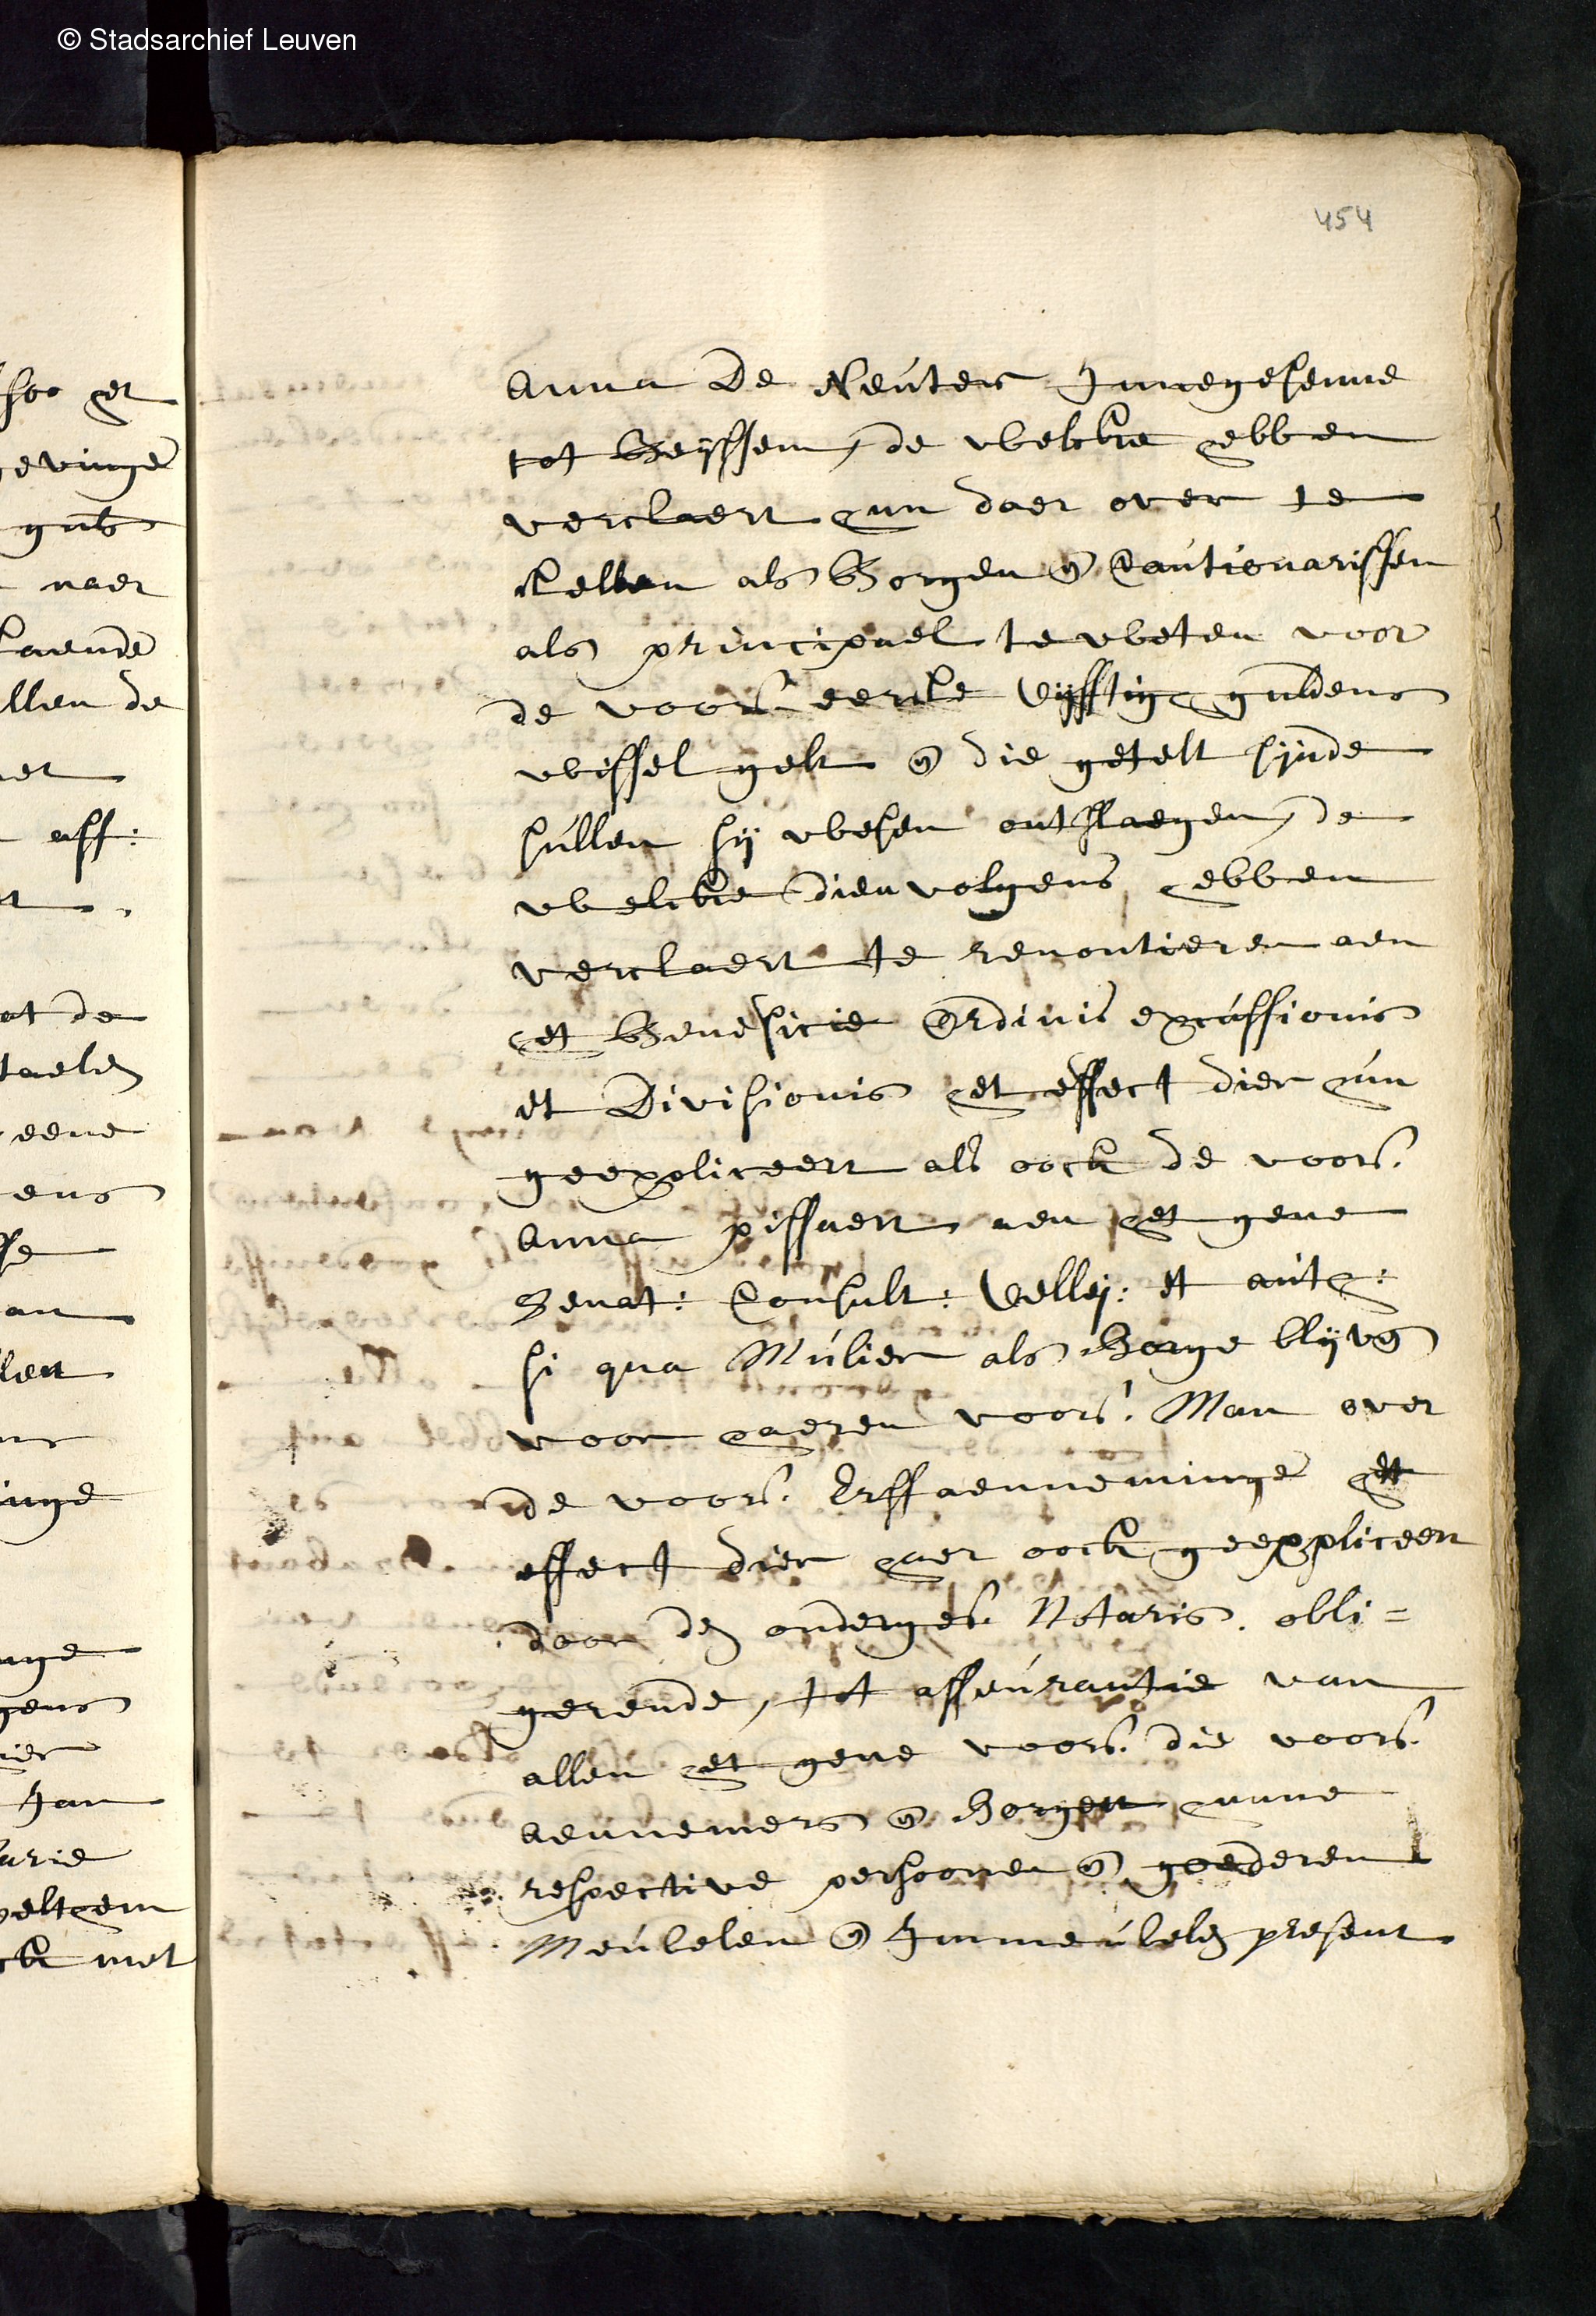 © Stadsarchief Leuven
454
Anna De Neuter Innegesenne
tot Beijssem, de welcke hebben
verclaert hun daer over te
stellen als Borgen en Cautionarissen
als principael te weten voor
de voors. eerste vijfftig guldens
wissel gelt en die getelt sijnde
sullen sij wesen ontslaegen, de
welcke dien volgens hebben
verclaert te renontieren aen
het Beneficie ordinis excussionis
et Divisionis het effect dier hun
geexpliceert als oock de voors.
Anna pissaert aen het gene
Senat: Consult: Vellej: et auth:
si qua Mulier als Borge blijven
voor haeren voors. Man over
de voors. Erffaenneminge het
effect dier haer oock geexpliceert
door den onderges. Notaris. obli=
gerende, tot asseurantie van
allen het gene voors. die voors.
aennemers en Borgen hunne
respective persoonen en goederen
Meubelen en Immeubelen present
soo het
gevinge
naer
llen de
aff:
at de
taelen
eene
van
inge
Jan
arie
met